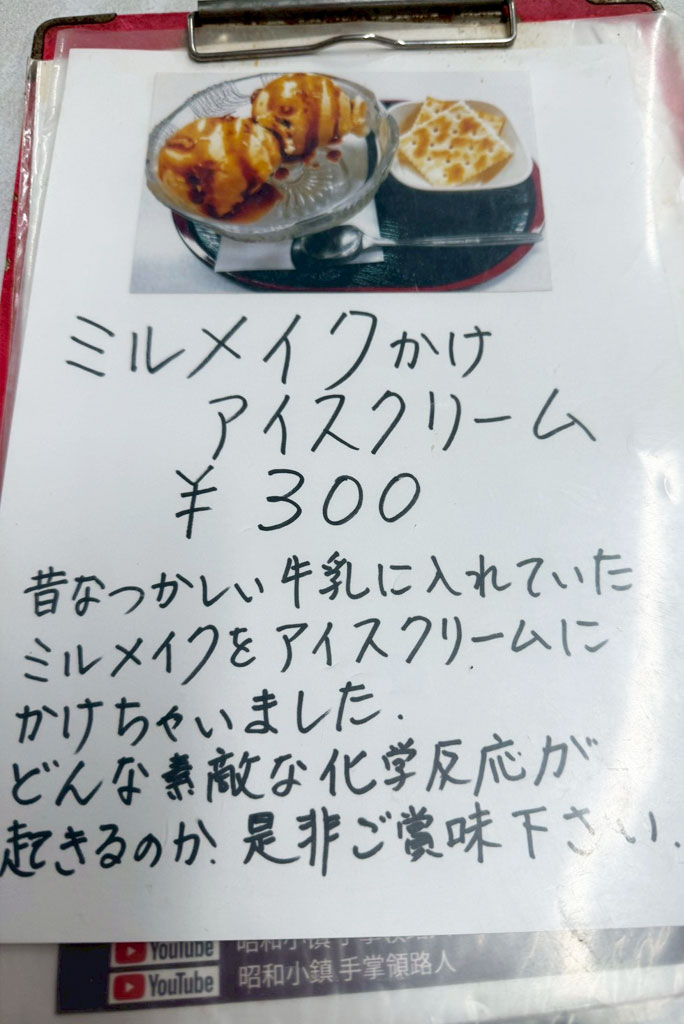 ミルメイクかけ
アイスクリーム
¥300
昔なつかしい牛乳に入れていた
ミルメイクをアイスクリームに
かけちゃいました.
どんな素敵な化学反応が
起きるのか.是非ご賞味下さい.
YouTube
YouTube 昭和小鎮 手掌領路人